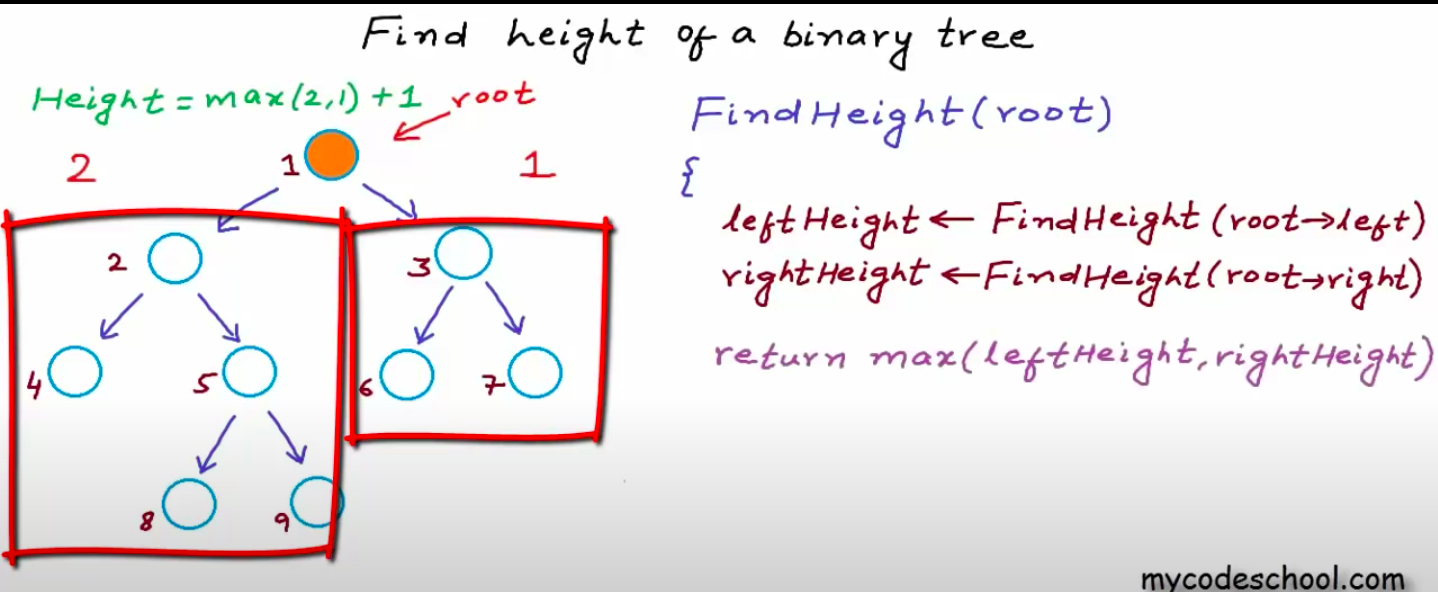 Find height of a binary tree
Height = max(2,1) + 1
root
2
1
1
2
3
4
5
6
7
8
9
FindHeight(root)
{
leftHeight ← FindHeight(root→left)
rightHeight ← FindHeight(root→right)
return max(leftHeight, rightHeight)
mycodeschool.com